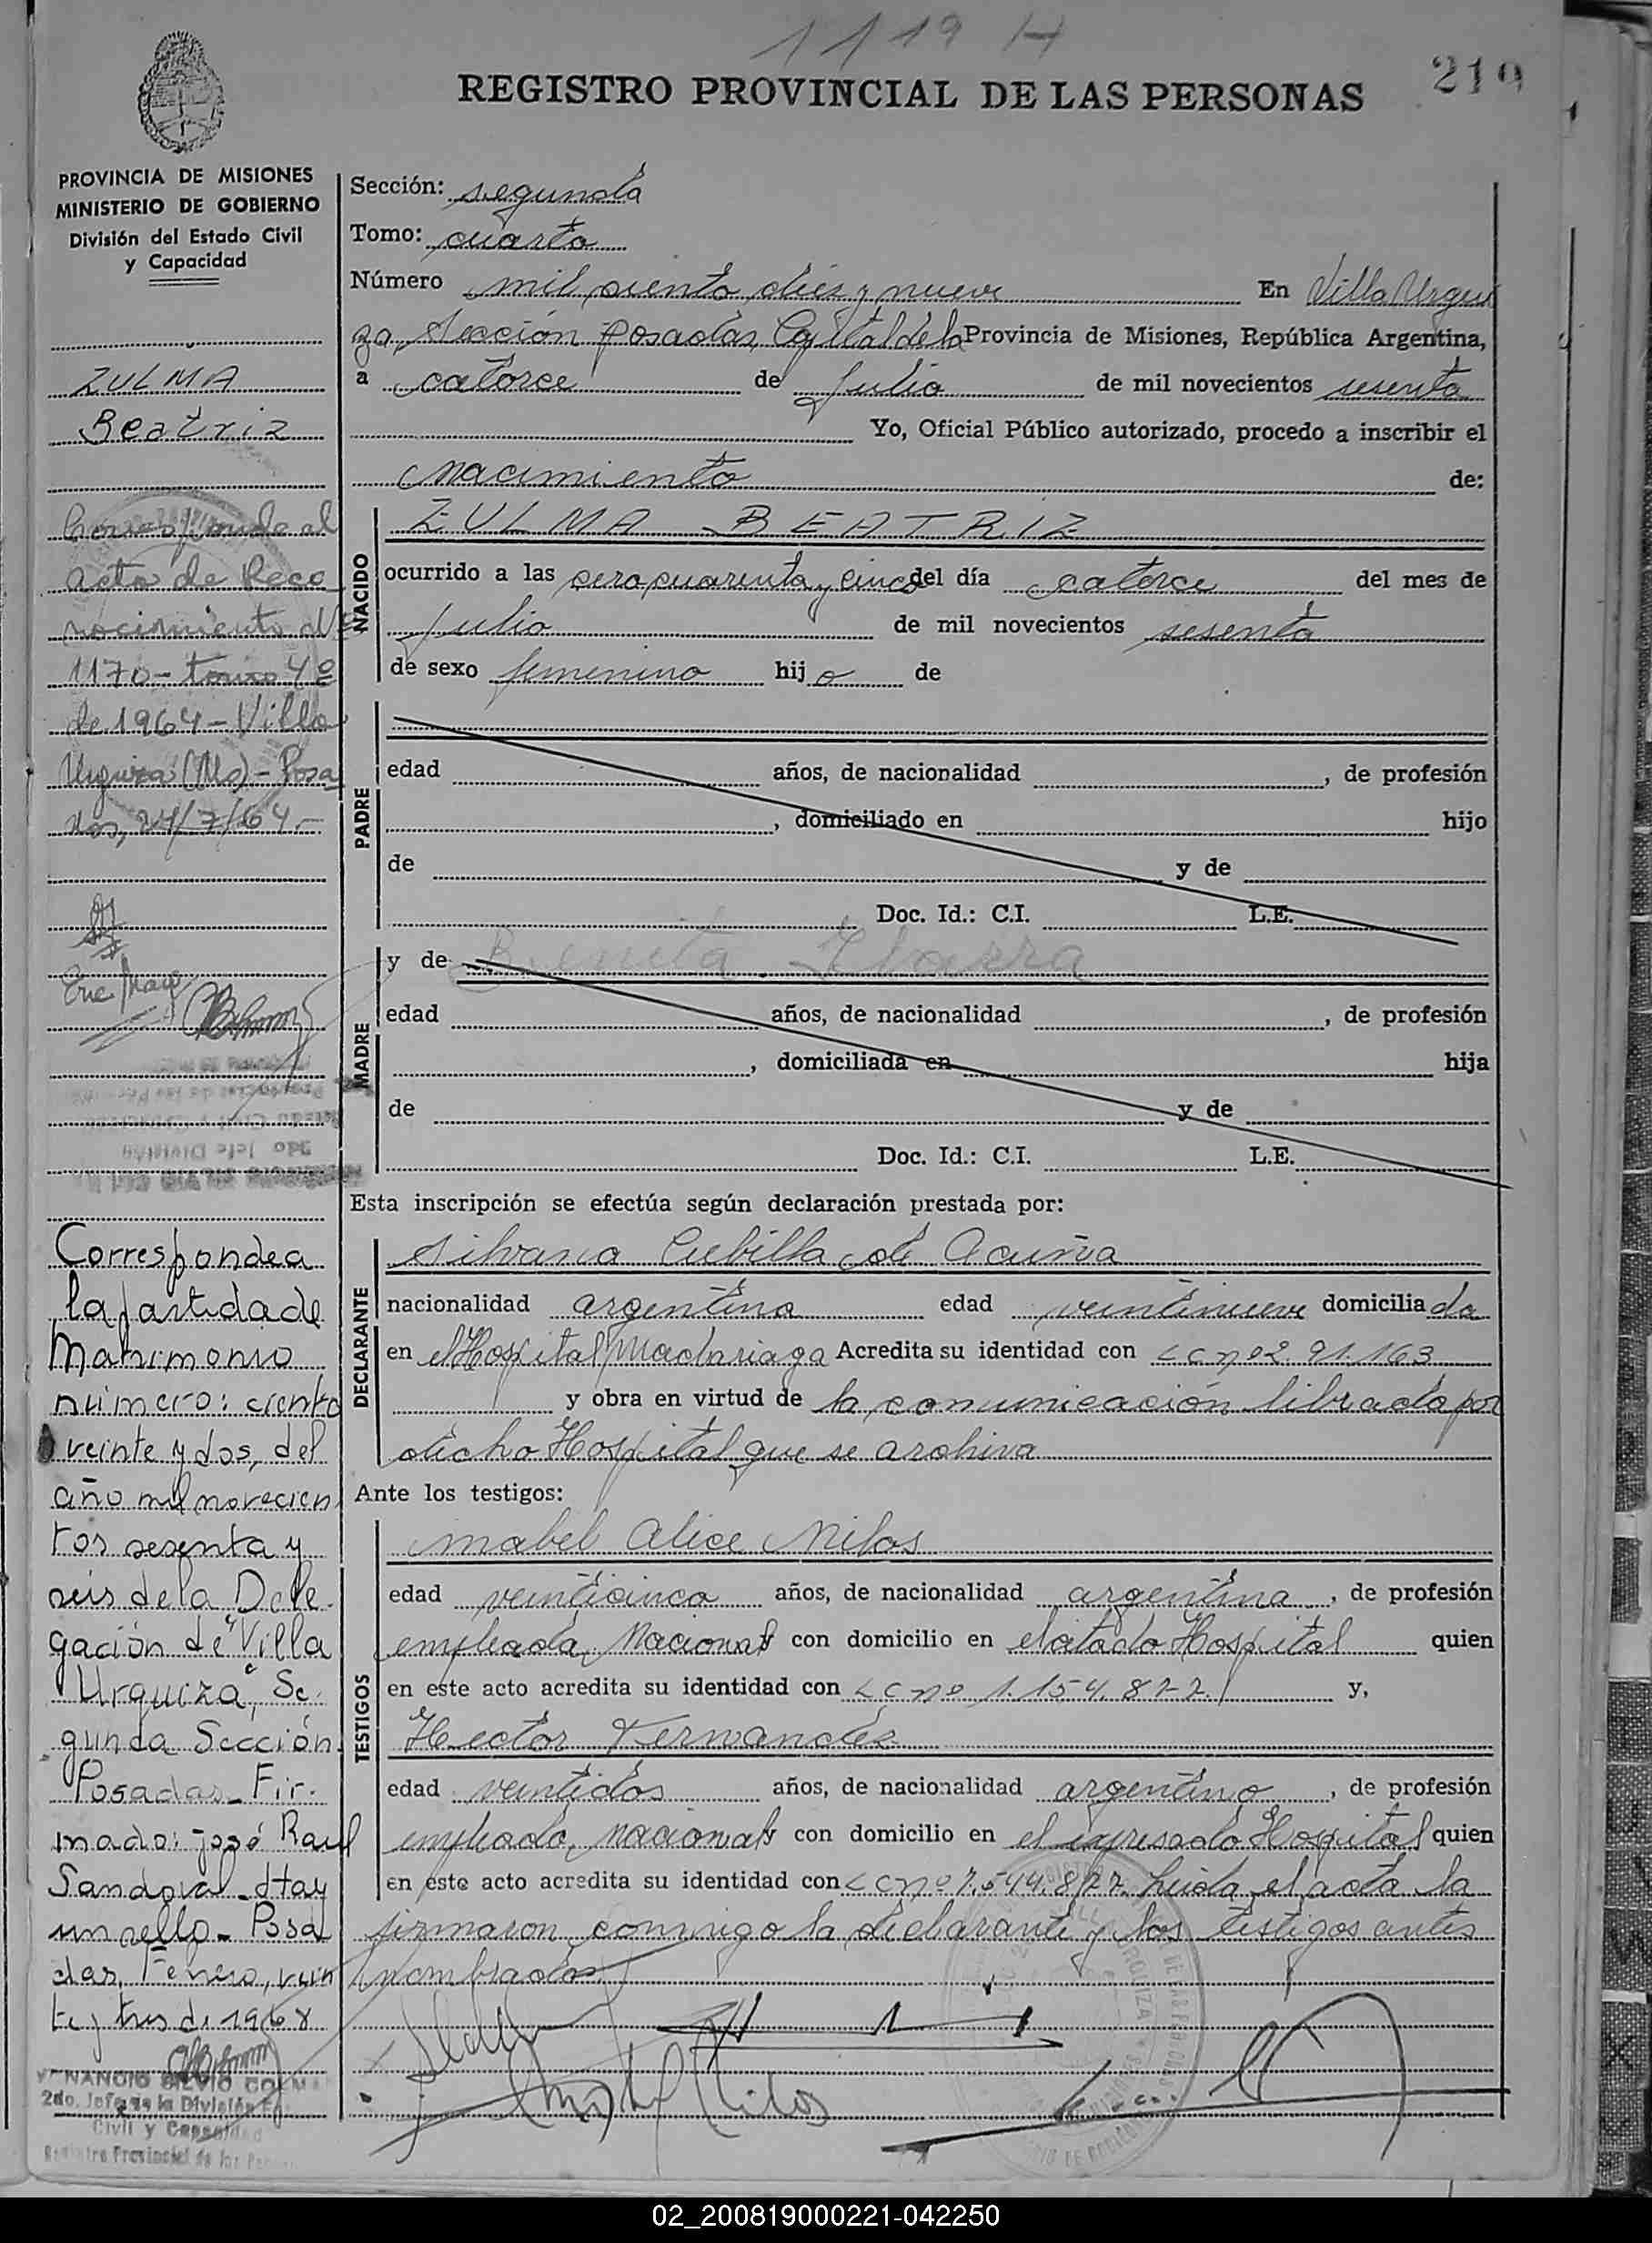 1119 H
219
REGISTRO PROVINCIAL DE LAS PERSONAS
PROVINCIA DE MISIONES
MINISTERIO DE GOBIERNO
División del Estado Civil
y Capacidad
ZULMA
Beatriz
Corresponde al
acta de Reco
nocimiento Nº
1170 - tomo 4º
de 1964 - Villa
Urquiza (Ms) - Posa
das, 24/7/64.-
Corresponde a
la partida de
Matrimonio
número: ciento
veinte y dos, del
año mil novecien
tos sesenta y
seis de la Dele-
gación de "Villa
Urquiza", Se-
gunda Sección
Posadas_ Fir-
mado: José Raul
Sandoval_ Hay
un sello_ Posa
das, Enero, vein
te y tres de 1968
VENANCIO SILVIO
2do. Jefe de la División
Civil y Capacidad
Registro Provincial de las
Sección: segunda
Tomo: cuarto
Número mil ciento diez y nueve En Villa Urqui
za, Sección Posadas, Capital de la Provincia de Misiones, República Argentina,
a catorce de Julio de mil novecientos sesenta
Yo, Oficial Público autorizado, procedo a inscribir el
nacimiento de:
NACIDO
ZULMA BEATRIZ
ocurrido a las cero cuarenta y cinco del día catorce del mes de
Julio de mil novecientos sesenta
de sexo femenino hij a de
PADRE
edad años, de nacionalidad , de profesión
, domiciliado en hijo
de y de
Doc. Id.: C.I. L.E.
MADRE
y de Benita Ibarra
edad años, de nacionalidad , de profesión
, domiciliada en hija
de y de
Doc. Id.: C.I. L.E.
Esta inscripción se efectúa según declaración prestada por:
DECLARANTE
Silvana Cubilla de Acuña
nacionalidad argentina edad veintinueve domicilia da
en el Hospital Madariaga Acredita su identidad con L C nº 2.91.163
y obra en virtud de la comunicación librada por
dicho Hospital que se archiva
Ante los testigos:
TESTIGOS
Mabel Alice Milos
edad veinticinco años, de nacionalidad argentina , de profesión
empleada Nacional con domicilio en el citado Hospital quien
en este acto acredita su identidad con L C nº 1.154.822 y,
Hector Fernandez
edad veintidos años, de nacionalidad argentino , de profesión
empleado, nacional con domicilio en el expresado Hospital quien
en este acto acredita su identidad con L C nº 7.544.827. Leida el acta la
firmaron conmigo la declarante y los testigos antes
nombrados
02_200819000221-042250